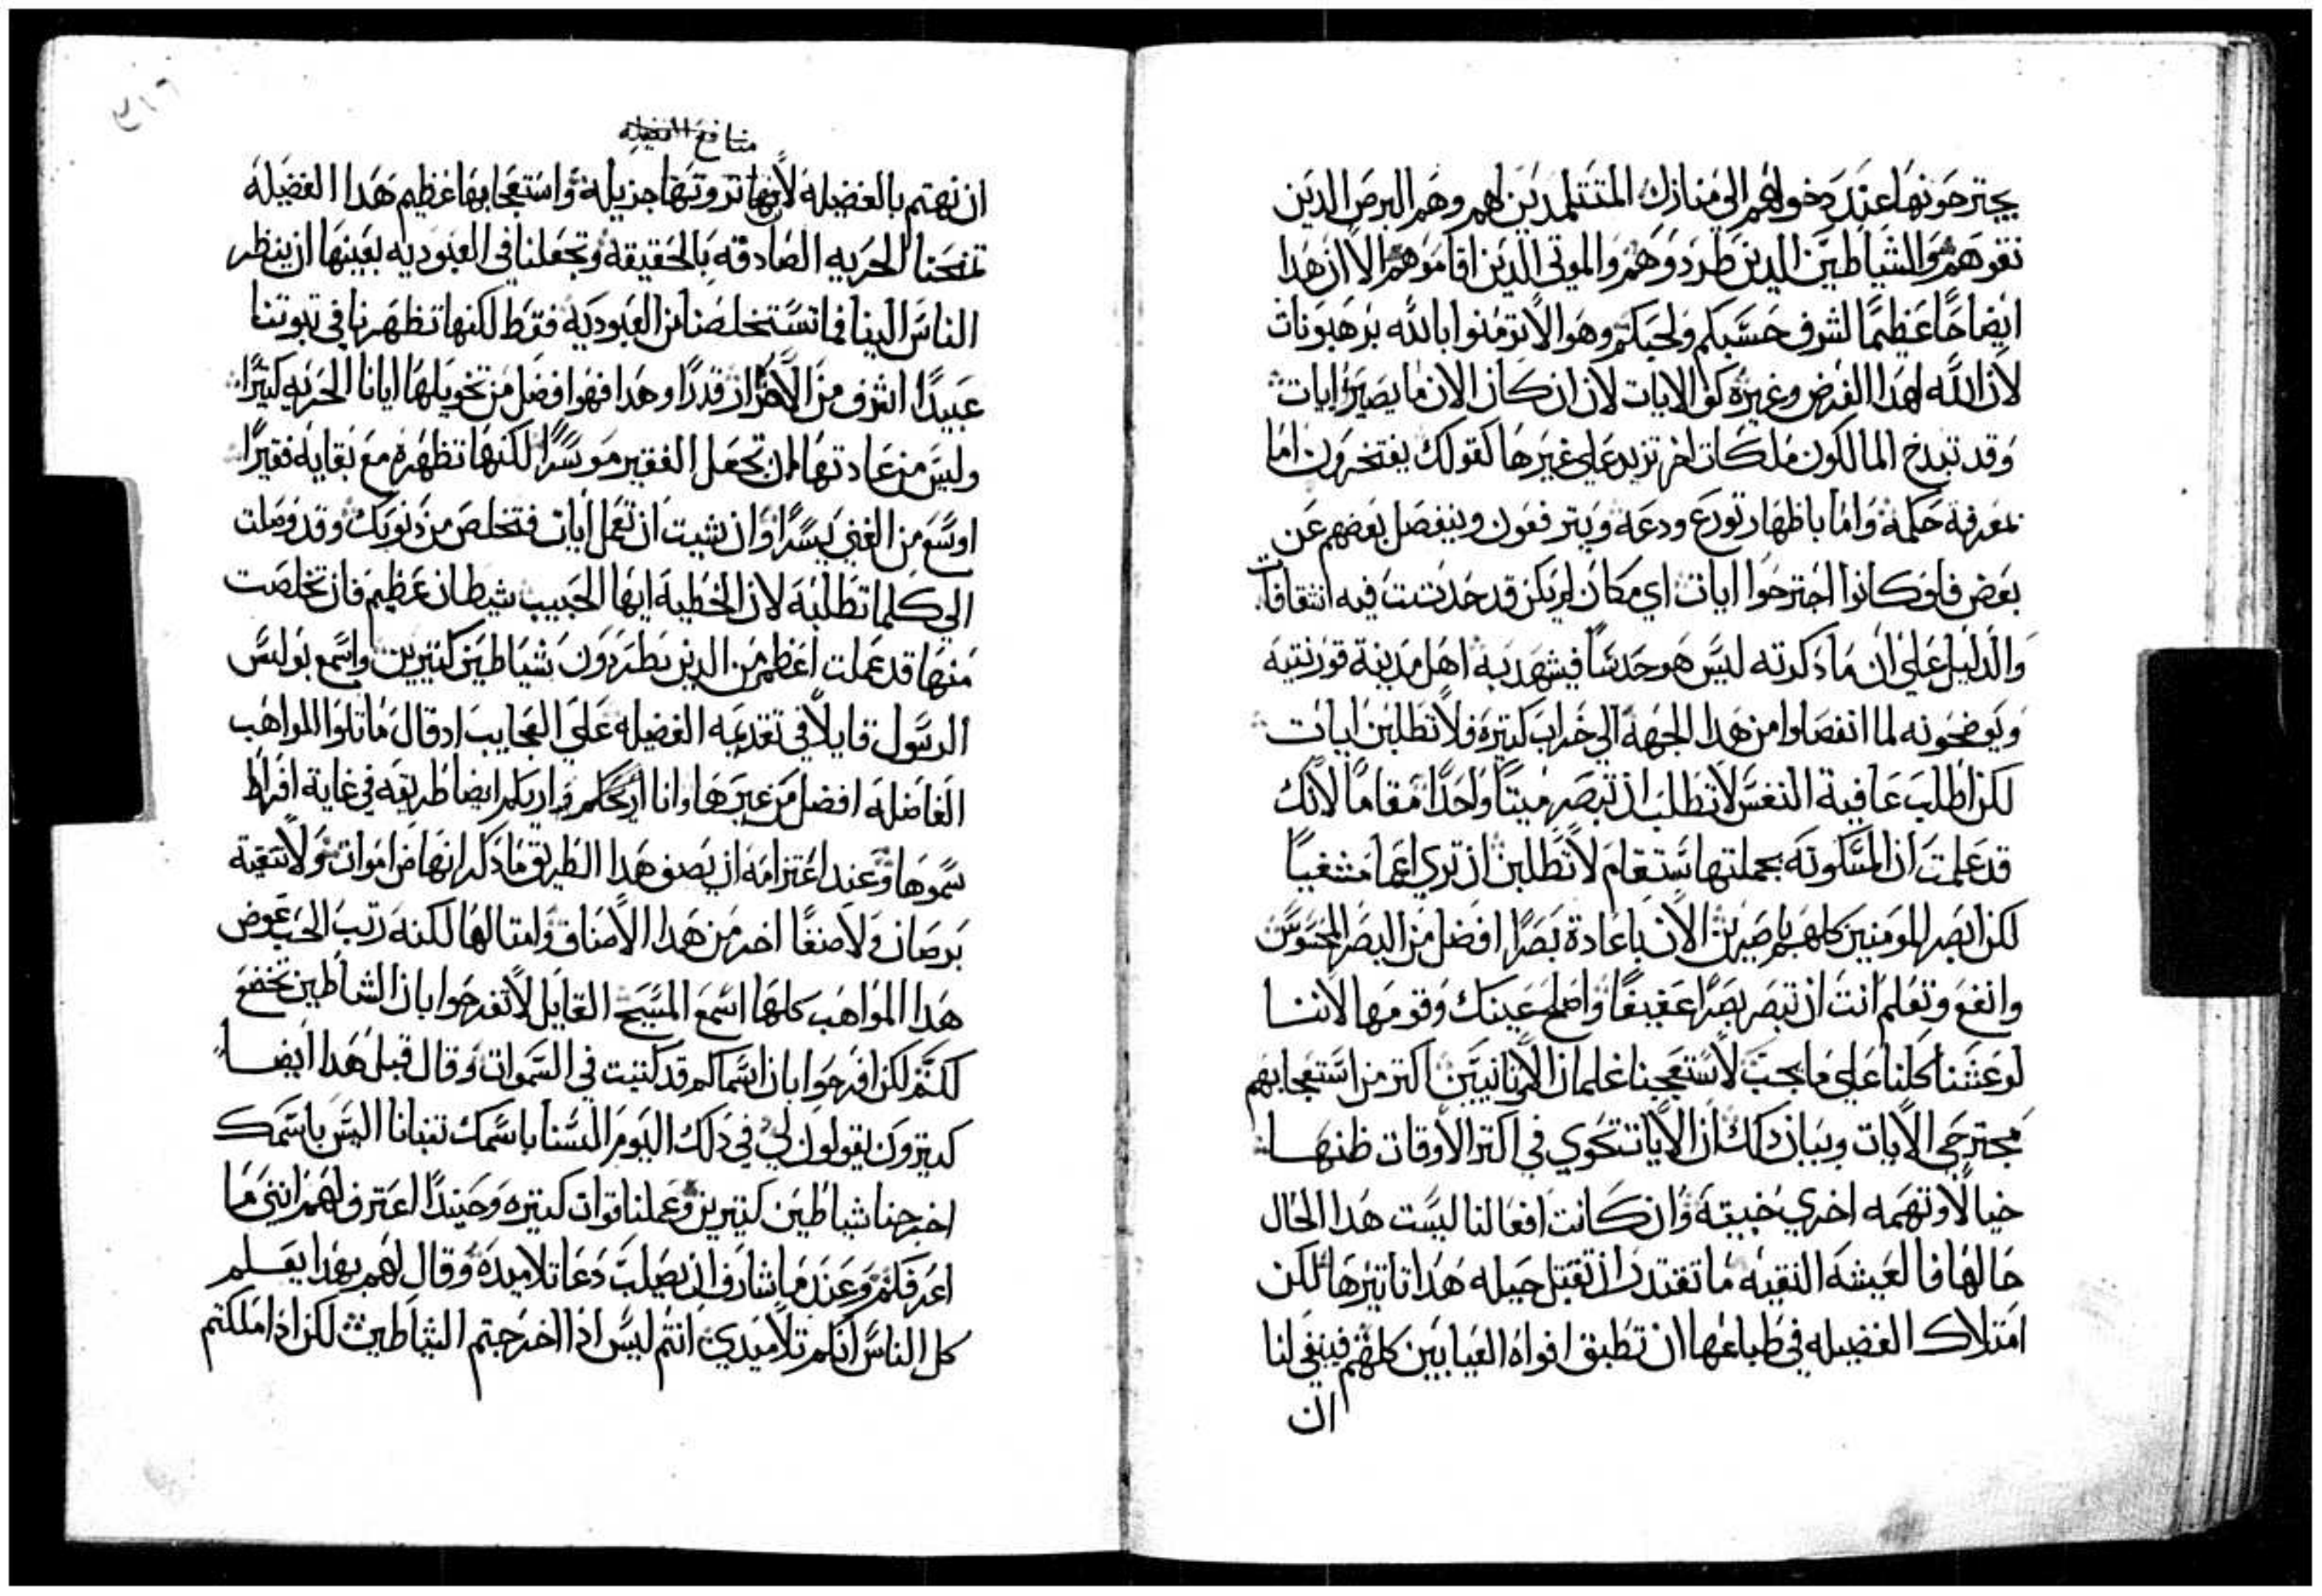 يجترحونها عند دخولهم الي منازل المتتلمدين لهم وهم البرص الدين
نقوهم والشياطين الدين طردوهم والموتي الدين اقاموهم الا ان هدا
ايضاحًا عظيمًا لشرف حسبكم ولحبكم وهو الا تومنوا بالله ببرهبونات
لان الله لهدا الغرض وغيره كف الايات لان ان كان الان ما يصير ايات
وقد تبدخ المالكون ملكات اخر تزيد علي غيرها كقولك يفتخرون اما
بمعرفة حكمة واما باظهار تورع ودعة ويترفعون وينفصل بعضهم عن
بعض فلو كانوا اجترحوا ايات اي مكان لم يكن قد حدتت فيه انتقاقات
والدليل علي ان ما دكرته ليس هو حدسًا فيشهد به اهل مدينة قورنتيه
ويوضحونه لما انفصلوا من هدا الجهة الي خراب كتيرة فلا تطلبن ايات
لكن اطلب عافية النفس لا تطلب ان تبصر ميتًا واحدًا مقامًا لانك
قد علمت ان المسكونه بجملتها ستقام لا تطلبن ان تري اعما مشفيًا
لكن ابصر المومنين كلهم باصرين الان باعادة بصرًا افضل من البصر المحسوس
وانفع وتعلم انت ان تبصر بصرًا عفيفًا واصلح عينك وقومها لاننا
لو عشنا كلنا علي ما يجب لاستعجبنا غلمان الاتانيين اكتر من استعجابهم
مجترحي الايات وبيان دلك ان الايات تحوي في اكتر الاوقات ظنها
خيالًا وتهمه اخري خبيته وان كانت افعالنا ليست هدا الحال
حالها فالعيشه النقيه ما تقتدر ان تقبل حيله هدا تاتيرها لكن
امتلاك الفضيله في طباعها ان تطبق افواه العيابين كلهم فينبغي لنا
ان
منافع الفضيله
ان نهتم بالفضيلة لانها تروتها جزيلة واستعجابها عظيم هدا الفضيله
تمنحنا الحريه الصادقه بالحقيقه وتجعلنا في العبوديه بعينها ان ينظر
الناس الينا فما تستخلصنا من العبوديه فقط لكنها تظهرنا في تبوتنا
عبيدًا اشرف من الاحرار قدرًا وهدا فهو افضل من تخويلها ايانا الحريه كتيرًا
وليس من عادتها ان تجعل الفقير موسرًا لكنها تظهره مع بقايه فقيرًا
اوسع من الغني يسرًا وان شيت ان تعمل ايات فتخلص من دنوبك وقد وصلت
الي كلما تطلبه لان الخطية ايها الحبيب شيطان عظيم فان تخلصت
منها قد عملت اعظم من الدين يطردون شياطين كتيرين واسمع بولس
الرسول قايلًا في تقديمه الفضيله علي العجايب اد قال ماتلوا المواهب
الفاضله افضل من غيرها وانا اريكم ايضا طريقه في غاية افراط
سموها وعند اعتزامه ان يصف هدا الطريق ما دكر انهاض اموات ولا تنقية
برصان ولا صنفًا اخر من هدا الاصناف وامتالها لكنه رتب الحب عوض
هدا المواهب كلها اسمع المسيح القايل لا تفرحوا بان الشياطين تخضع
لكم لكن افرحوا بان اسماكم قد كتبت في السموات وقال قبل هدا ايضا
كتيرون يقولون لي في دلك اليوم السنا باسمك تنبانا اليس باسمك
اخرجنا شياطين كتيرين وعملنا قوات كتيره وحينيدًا اعترف لهم انني ما
اعرفكم وعند ما شارف ان يصلب دعا تلاميده وقال لهم بهدا يعلم
كل الناس انكم تلاميدي انتم ليس ادا اخرجتم الشياطين لكن ادا املكتم